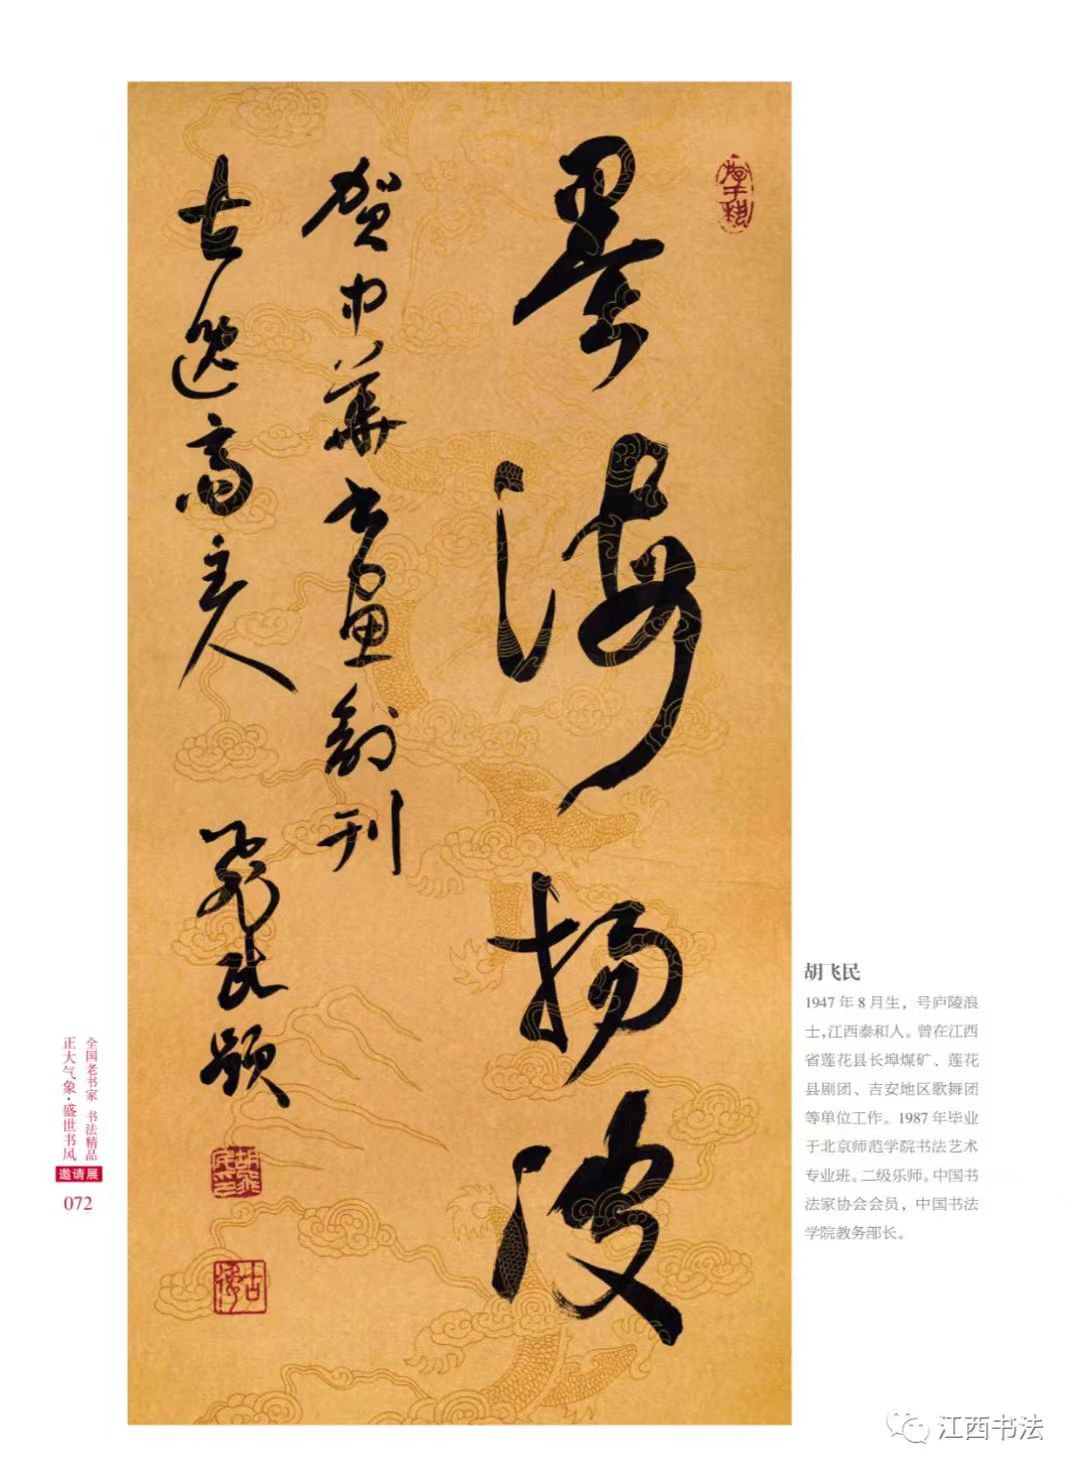 墨海扬波
贺中华书画创刊
古逸高主人
飞民题
胡飞民
1947 年 8 月生，号庐陵浪
士，江西泰和人。曾在江西
省莲花县长埠煤矿、莲花
县剧团、吉安地区歌舞团
等单位工作。1987 年毕业
于北京师范学院书法艺术
专业班。二级乐师。中国书
法家协会会员，中国书法
学院教务部长。
全国老书家 书法精品
正大气象·盛世书风
邀请展
072
江西书法